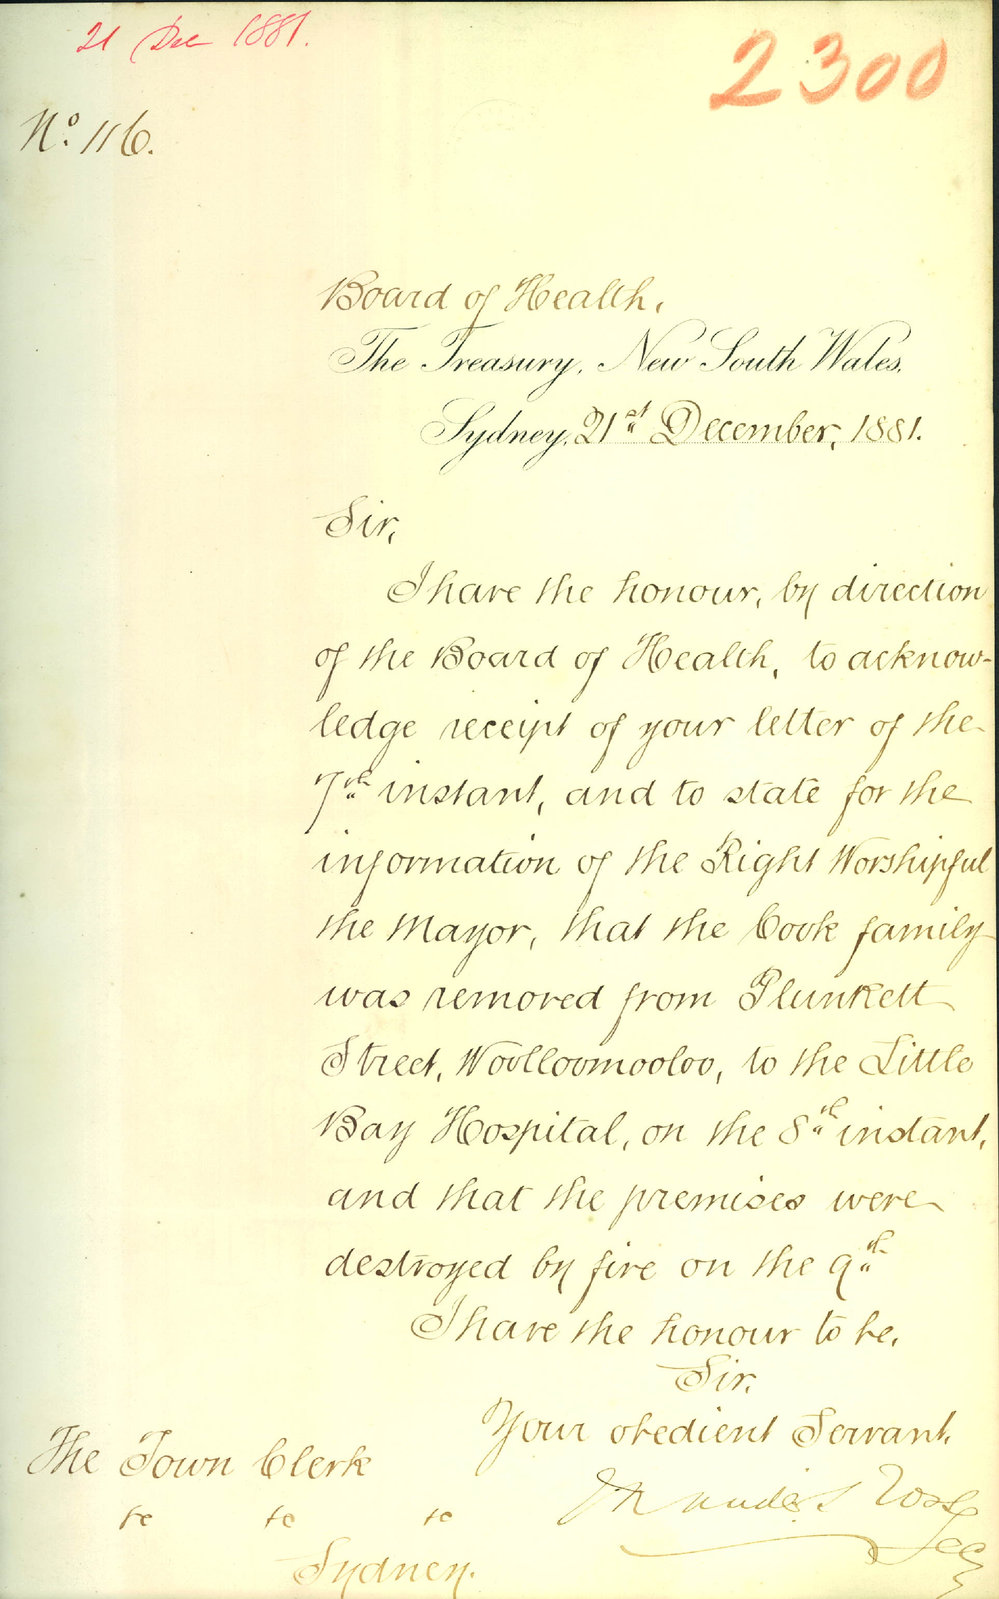 21 Dec 1881.
2300
No. 116.
Board of Health,
The Treasury, New South Wales,
Sydney, 21st December, 1881.
Sir,
I have the honour, by direction
of the Board of Health, to acknow-
ledge receipt of your letter of the
7th instant, and to state for the
information of the Right Worshipful
the Mayor, that the Cook family
was removed from Plunkett
Street, Woolloomooloo, to the Little
Bay Hospital, on the 8th instant,
and that the premises were
destroyed by fire on the 9th
I have the honour to be,
Sir,
Your obedient Servant,
Ross
Secy
The Town Clerk
&c &c &c
Sydney.